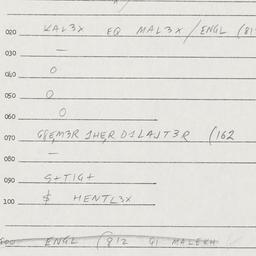 020 KAL3X EQ MAL3X/ENGL (81
030 —
040 O
050 O
060 O
070 (162
080 —
090 S+TIG+
100 $ HENTL3X
ENGL (812 GI MALEKH